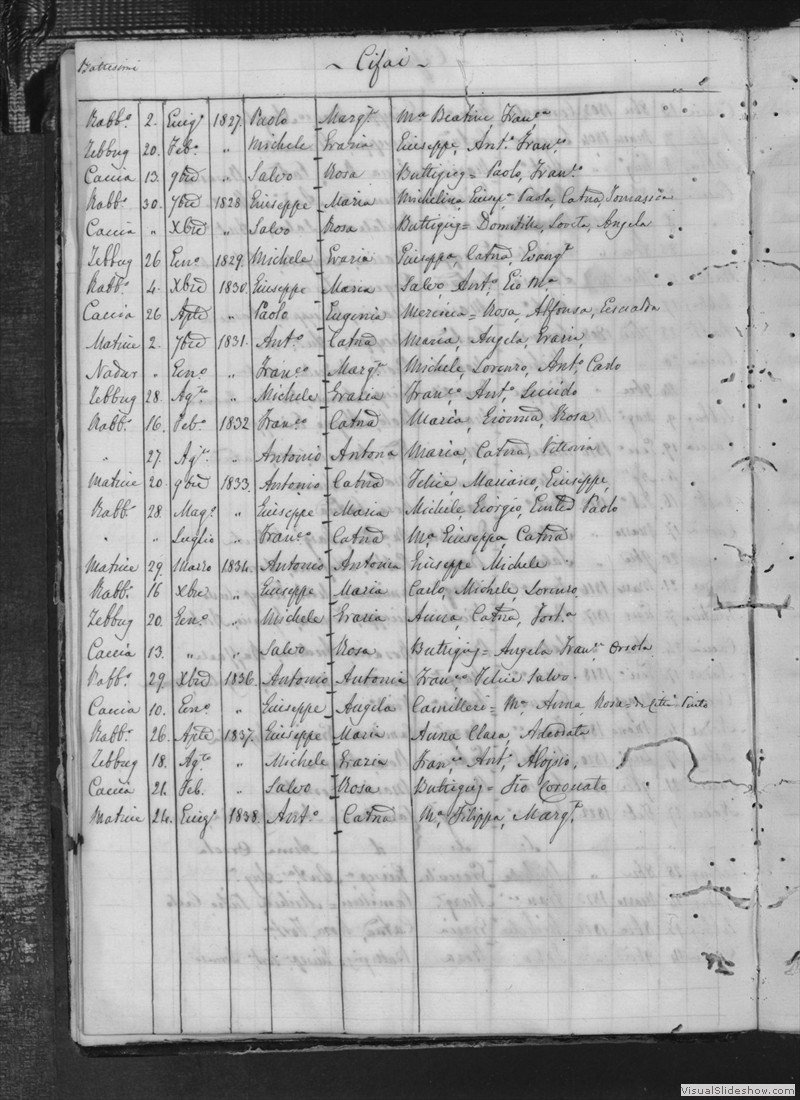 Battesimi
~ Cifai ~
Rabb.o 2. Giug.o 1827. Paolo Marg.ta M.a Beatrice, Fran.ca
Zebbug 20. Feb.o " Michele Grazia Giuseppe, Ant.o Fran.co
Caccia 13. 9bre " Salvo Rosa Buttigieg = Paolo, Fran.co
Rabb.o 30. 7bre 1828 Giuseppe Maria Michelina Gius.a Paola, Catna Tomassa
Caccia " Xbre " Salvo Rosa Buttigieg = Domitilla, Angela
Zebbug 26 Gen.o 1829. Michele Grazia Giuseppa, Catna, Evang.ta
Rabb.o 4. Xbre 1830. Giuseppe Maria Salvo, Ant.o, Gio M.a
Caccia 26 Aple " Paolo Eugenia = Rosa, Alfonsa,
Matrice 2. 7bre 1831. Ant.o Catna Maria, Angela, Grazia,
Nadur " Gen.o " Fran.co Marg.ta Michele, Lorenzo, Ant.o Carlo
Zebbug 28. Ag.to " Michele Grazia Fran.co Ant.o
Rabb.o 16. Feb.o 1832 Fran.co Catna Maria, Giovnna, Rosa
" 27. Ag.to " Antonio Antona Maria, Catna, Vittoria
Matrice 20. 9bre 1833. Antonio Catna Felice Mariano, Giuseppe,
Rabb.o 28. Mag.o " Giuseppe Maria Michele Giorgio, Paolo
" " Luglio " Fran.co Catna M.a Giuseppa Catna
Matrice 29. Marzo 1834. Antonio Antonia Giuseppe Michele
Rabb.o 16 Xbre " Giuseppe Maria Carlo, Michele, Lorenzo
Zebbug 20. Gen.o " Michele Grazia Anna, Catna, Fort.a
Caccia 13. " " Salvo Rosa Buttigieg = Angela Fran.ca Orsola
Rabb.o 29. Xbre 1836. Antonio Antonia Fran.co Felice Salvo.
Caccia 10. Gen.o " Giuseppe Angela Camilleri = M.a Anna Rosa =
Rabb.o 26. Aple 1837. Giuseppe Maria Anna Clara, Adeodata
Zebbug 18. Ag.to " Michele Grazia Fran.co Ant.o Aloisio.
Caccia 21. Feb. " Salvo Rosa Buttigieg = Coronato
Matrice 24. Giug.o 1838. Ant.o Catna M.a Filippa, Marg.ta
VisualSlideshow.com